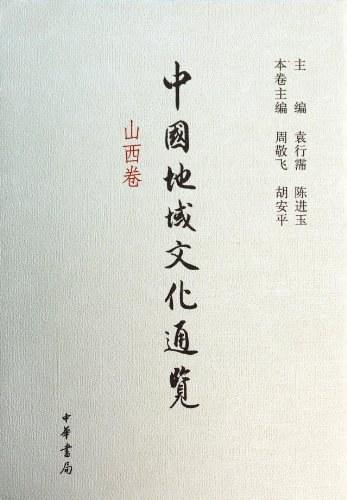 主编 袁行霈 陈进玉
本卷主编 周敬飞 胡安平
中國地域文化通覽
山西卷
中華書局